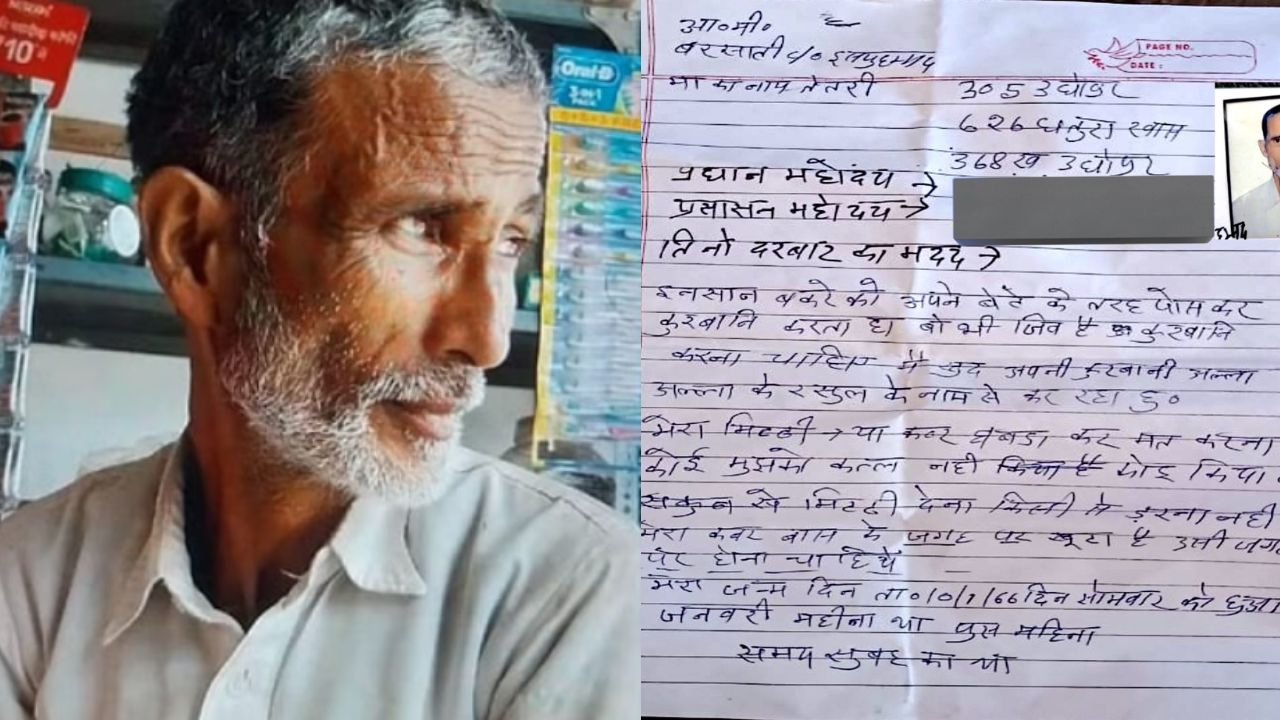 ₹10
Oral-B
3-in-1
PACK
PAGE NO.
DATE :
आ०मी०
बरसाती
मा का नाम तेतरी
305 उधोपुर
626
368ख उधोपुर
प्रधान महोदय →
प्रसासन महोदय →
तिनो दरबार का मदद →
इनसान बकरे को अपने बेटे के तरह पोस कर
कुरबानि करता हा वो भी जिव है कुरबानि
करना चाहिए मै खुद अपनी कुरबानी अल्ला
अल्ला के रसुल के नाम से कर रहा हु०
मेरा मिटटी → या कबर घबडा कर मत करना
कोई मुझको कत्ल नही किया है
सकुन से मिटटी देना किसी से डरना नही
मेरा कबर बास के जगह पर खूटा है उसी जगह
पर होना चाहिये
मेरा जन्म दिन ता० 10/1/66 दिन सोमवार को हुआ
जनवरी महीना था पुस महिना
समय सुबह का था